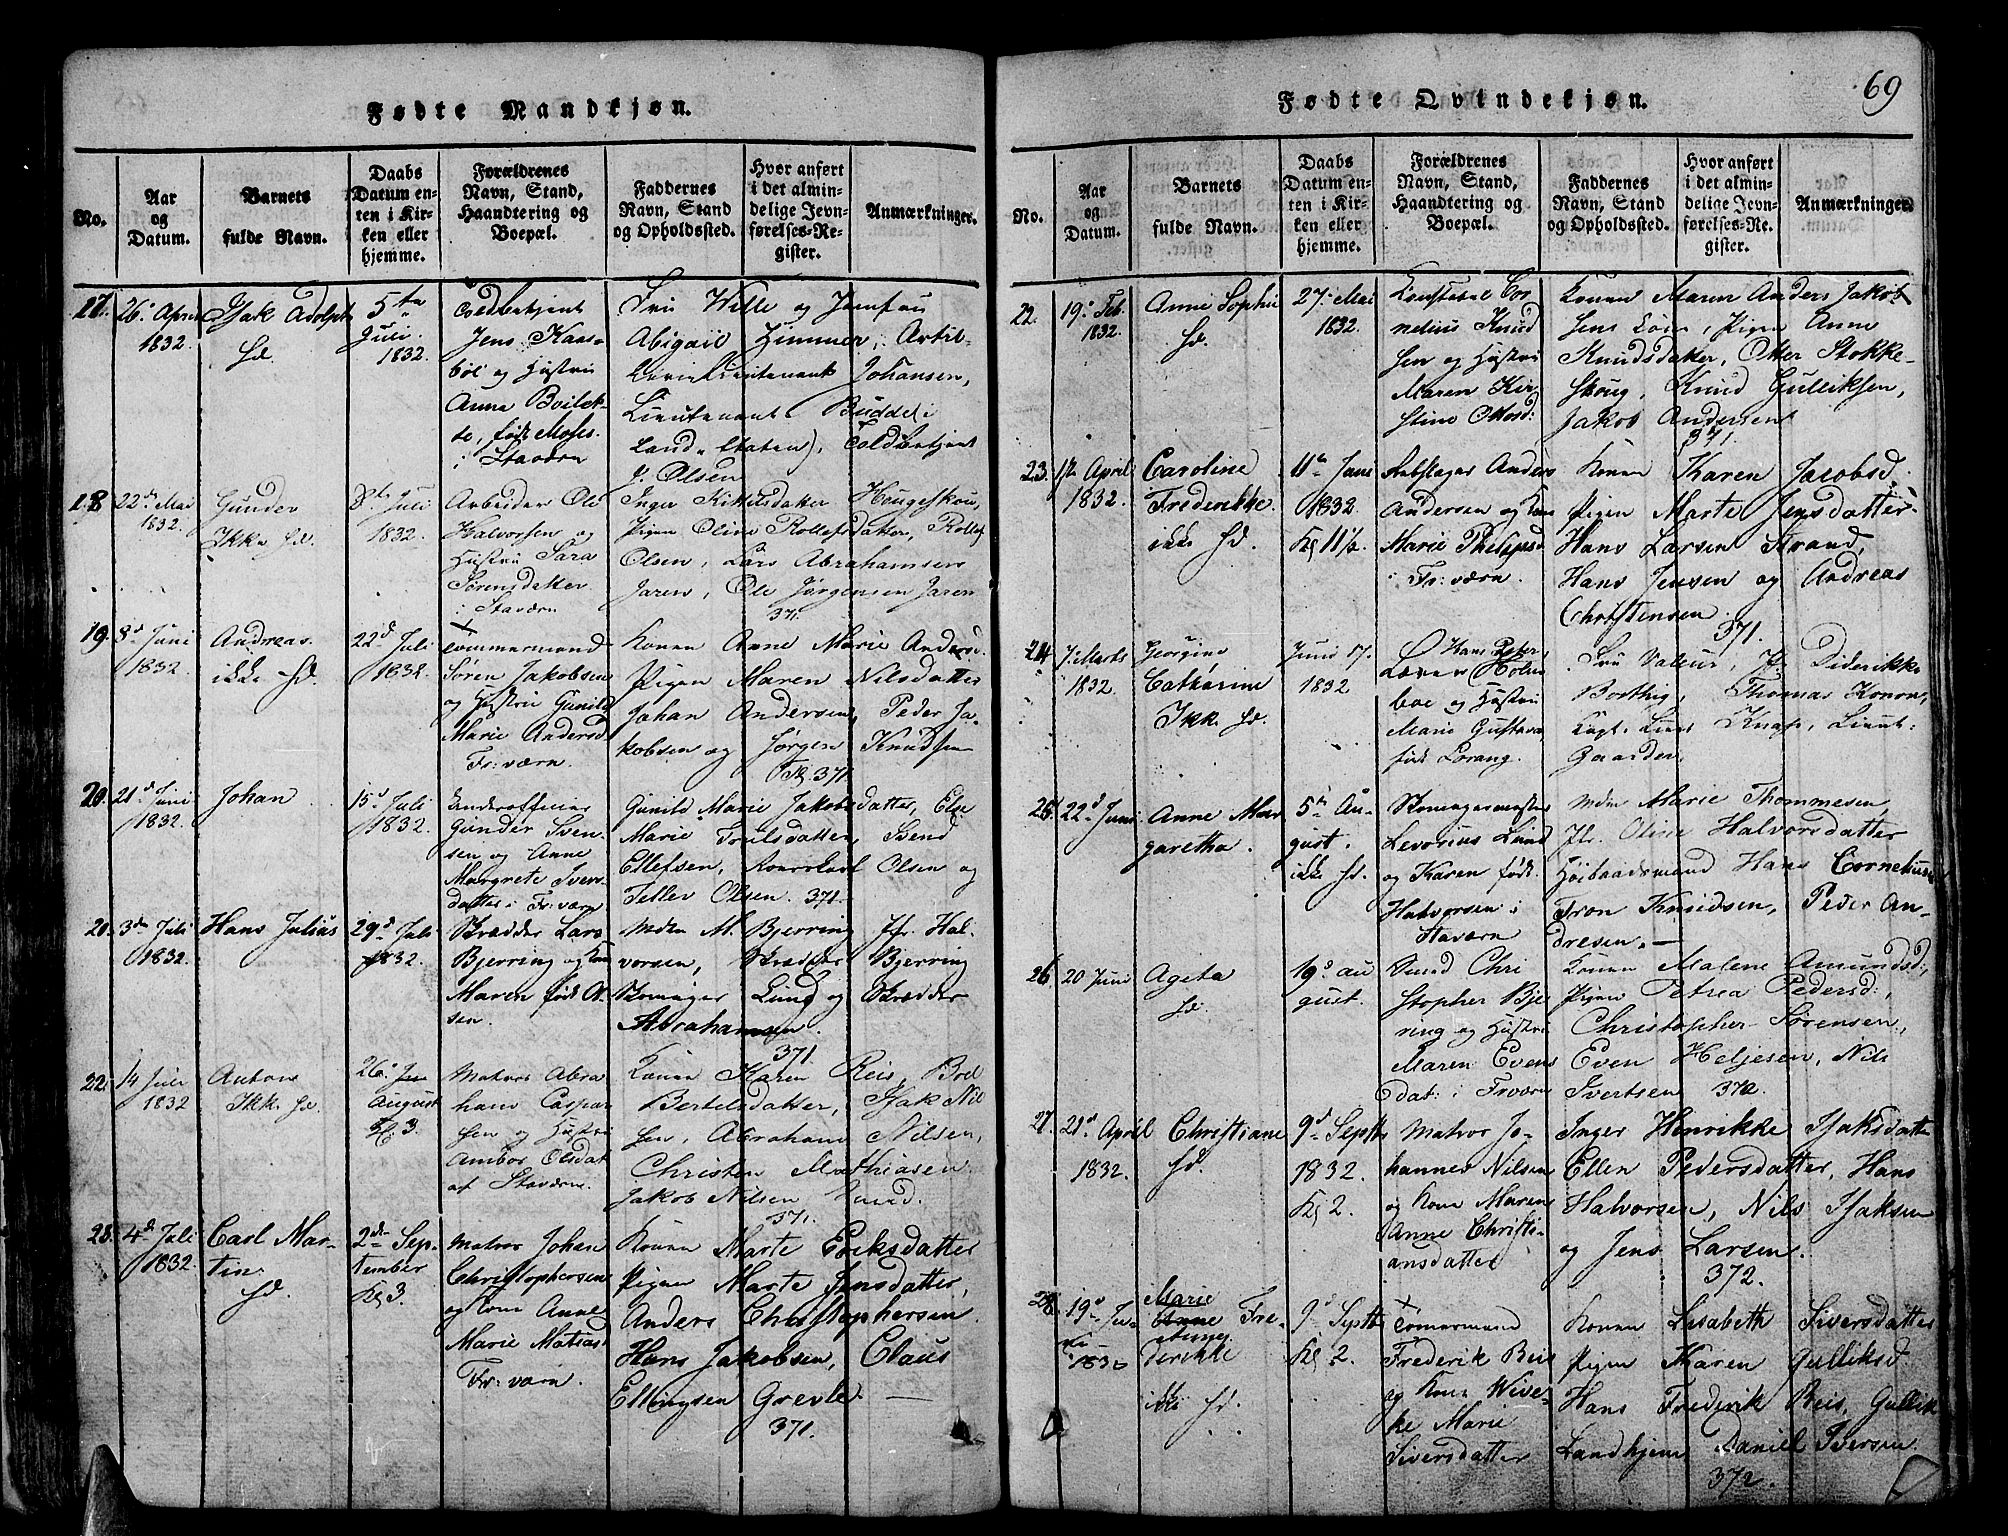 69
Fødte Mandkjøn.
No.
Aar
og
Datum.
Barnets
fulde Navn.
Daabs
Datum en-
ten i Kir-
ken eller
hjemme.
Forældrenes
Navn, Stand,
Haandtering og
Boepæl.
Faddernes
Navn, Stand
og Opholdssted.
Hvor anført
i det almin-
delige Jevn-
førelses-Re-
gister.
Anmærkninger.
17.
26. April
1832.
Isak Adolph
Hd.
5te
Juli
1832.
Toldbetjent
Jens Kaas-
bøl og Hustru
Anna
født Moses
i Stavern
Fru Wille og Jomfru
Abigail Zimmer, Artil-
Lieutenant Johansen,
Lieutenant Budde i
Land-Etaten), Toldbetjent
J. Olsen
18
22de Mai
1832.
Gunder
Ikke Hd.
8de Juli
1832.
Arbeider Ole
Halvorsen og
Hustru Sara
Sørensdatter
i Stavern
Inger Kittilsdatter
Pigen Oline Rollefsdatter, Rollef
Olsen, Lars Abrahamsen
Jaren, Ole Jørgensen Jaren
371.
19.
8d Juni
1832.
Andreas
ikke Hd.
22d Juli
1832.
Tømmermand
Søren Jakobsen
og Hustru Gunild
Marie Andersd.
Fr:værn.
Konen Anne Marie Andersd.
Pigen Maren Nilsdatter
Johan Andersen, Peder Ja-
kobsen og Jørgen Knudsen
371.
20.
21d Juni
1832.
Johan
15d Juli
1832.
Underofficier
Gunder Sven-
sen og Anne
Margrete Svens-
datter i Fr:værn
Gunild Marie Jakobsdatter, Else
Marie Truilsdatter, Svend
Ellefsen, Olsen og
Tellev Olsen. 371.
21.
3die Juli
1832.
Hans Julius
29d Juli
1832.
Skrædder Lars
Bjerring og Kone
Maren født Ol-
sen.
Mdm M. Bjerring Jfr. Hal-
vorsen, Skrædder Bjerring
Lund og Skrædder
Abrahamsen.
371.
22.
14 Juli
1832
Anton
Ikk. Hd.
26.
August
Kl. 3.
Matros Abra
ham Caspar
sen og Hustru
Ambor Olsdat
af Stavern.
Konen Karen Reis, Boel
Bertelsdatter, Isak Nil
sen, Abraham Nilsen,
Christen Mathiasen
Jakob Nilsen
371.
23.
4d Juli
1832
Carl Mar-
tin.
Hd.
2den Sep-
tember
Kl 3.
Matros Johan
Christophersen
og Kone Anne
Marie Matiasd
Fr:værn.
Konen Marte Eriksdatter
Pigen Marte Jensdatter,
Anders Christophersen
Hans Jakobsen, Claus
Ellingsen Grevle.
371.
Fødte Qvindekjøn.
No.
Aar
og
Datum.
Barnets
fulde Navn.
Daabs
Datum en-
ten i Kir-
ken eller
hjemme.
Forældrenes
Navn, Stand,
Haandtering og
Boepæl.
Faddernes
Navn, Stand
og Opholdssted.
Hvor anført
i det almin-
delige Jevn-
førelses-Re-
gister.
Anmærkninger.
22.
19. Feb.
1832.
Anne Sophie
Hd.
27. Mai
1832.
Konstabel Cor
nelius Knud
sen og Hustru
Maren Kir-
stine Ottosd:
Konen Maren Anders Jakob
sens Pigen Anne
Knudsdatter, Otter Stokke-
skoug, Knud Gulliksen,
Jakob Andersen
371.
23.
17. April
1832.
Caroline
Frederikke
ikke Hd.
11te Juni
1832
Kl 11½
Anders
Andersen og Kone
Marie Philipsd
i Fr:værn.
Konen Karen Jacobsd.
Pigen Marte Jensdatter
Hans Larsen Strand,
Hans Jensen og Andreas
Christensen.
371.
24
7. Marts
1832.
Georgine
Catharine
Ikk. Hd.
Juni 17.
1832
Hans Peter
Holm
boe og Hustru
Marie Gustava
født Lorang.
Fru Valeur, Jfr. Diderikke
Borthig, Thomas Konow,
Knap, Lieut.
Gaarder.
25.
22d Juni
Anne Mar
garetha.
5te Au-
gust.
ikke Hd.
Levorius Lund
og Karen født
Halvorsen i
Stavern
Mdm Marie Thommesen
Jfr. Oline Halvorsdatter
Høibaadsmand Hans Corneliusen
Tron Knudsen, Peder An-
dresen.
26.
20 Juni
Ageta
Hd.
19d au
gust.
Smed Chri
stopher Bjer
ring og Hustru
Maren Evens
dat: i Frværn
Konen Malene Amundsd:,
Pigen Petrea Pedersd:,
Christopher Sørensen,
Even Heljesen, Nils
Ivertsen 372.
27.
21d April
1832.
Christiane
Hd.
9d Septbr
1832.
Kl 2.
Matros Jo-
hannes Nilsen
og Kone Maren
Anne Christi-
ansdatter
Inger Henrikke Isaksdatter
Ellen Pedersdatter, Hans
Halvorsen, Nils Isaksen
og Jens Larsen.
372.
28.
19d Ju-
li
1832
Marie
Anne Fre-
derikke
ikke Hd.
9d Septb
Kl 2.
Tømermand
Frederik Reis
og Kone Wive-
ke Marie
Siversdatter
Konen Lisabeth Siversdatter
Pigen Karen Gulliksd.
Hans Frederik Reis, Gullik
Landhjem Daniel Iversen.
372.